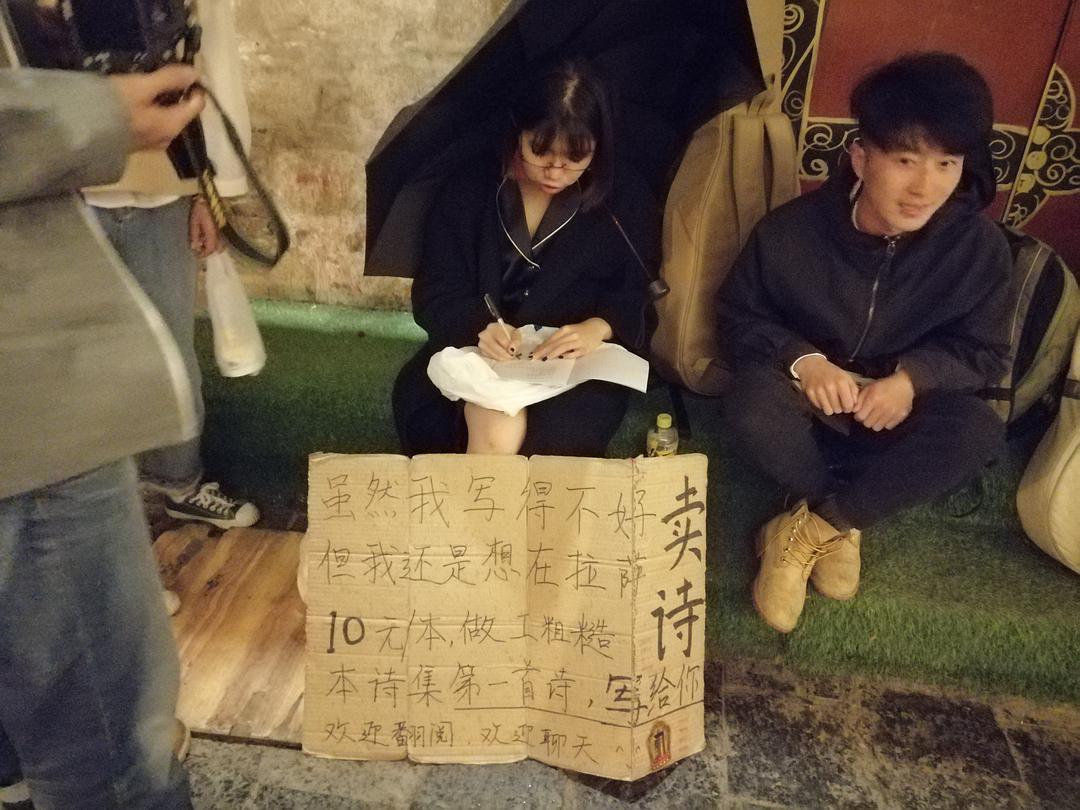 卖诗
虽然我写得不好
但我还是想在拉萨
10元/本,做工粗糙
本诗集第一首诗,写给你
欢迎翻阅,欢迎聊天^^